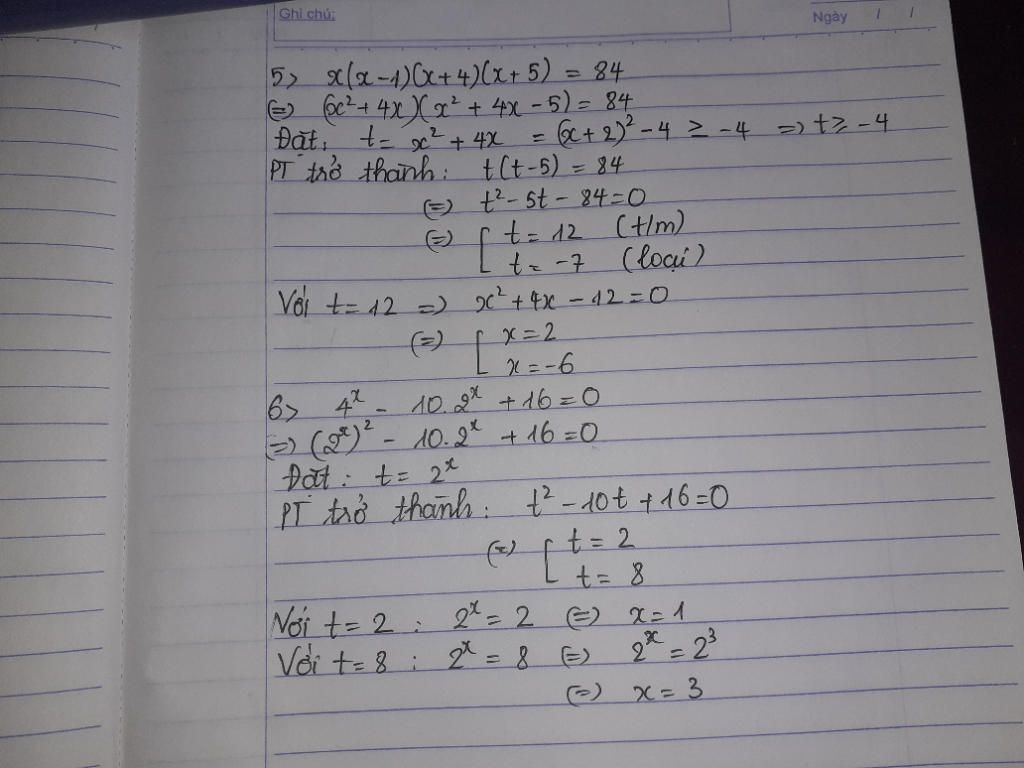 Ghi chú:
Ngày / /
5> x(x-1)(x+4)(x+5) = 84
(=) (x²+4x)(x²+4x-5) = 84
Đặt: t = x²+4x = (x+2)²-4 ≥ -4 => t ≥ -4
PT trở thành: t(t-5) = 84
(=) t²-5t-84=0
(=) [ t = 12 (t/m)
t = -7 (loại)
Với t=12 => x²+4x-12=0
(=) [ x=2
x=-6
6> 4ˣ - 10.2ˣ +16=0
(=) (2ˣ)² - 10.2ˣ +16=0
Đặt: t= 2ˣ
PT trở thành: t²-10t+16=0
(=) [ t = 2
t = 8
Với t=2 : 2ˣ = 2 (=) x=1
Với t=8 : 2ˣ = 8 (=) 2ˣ = 2³
(=) x = 3